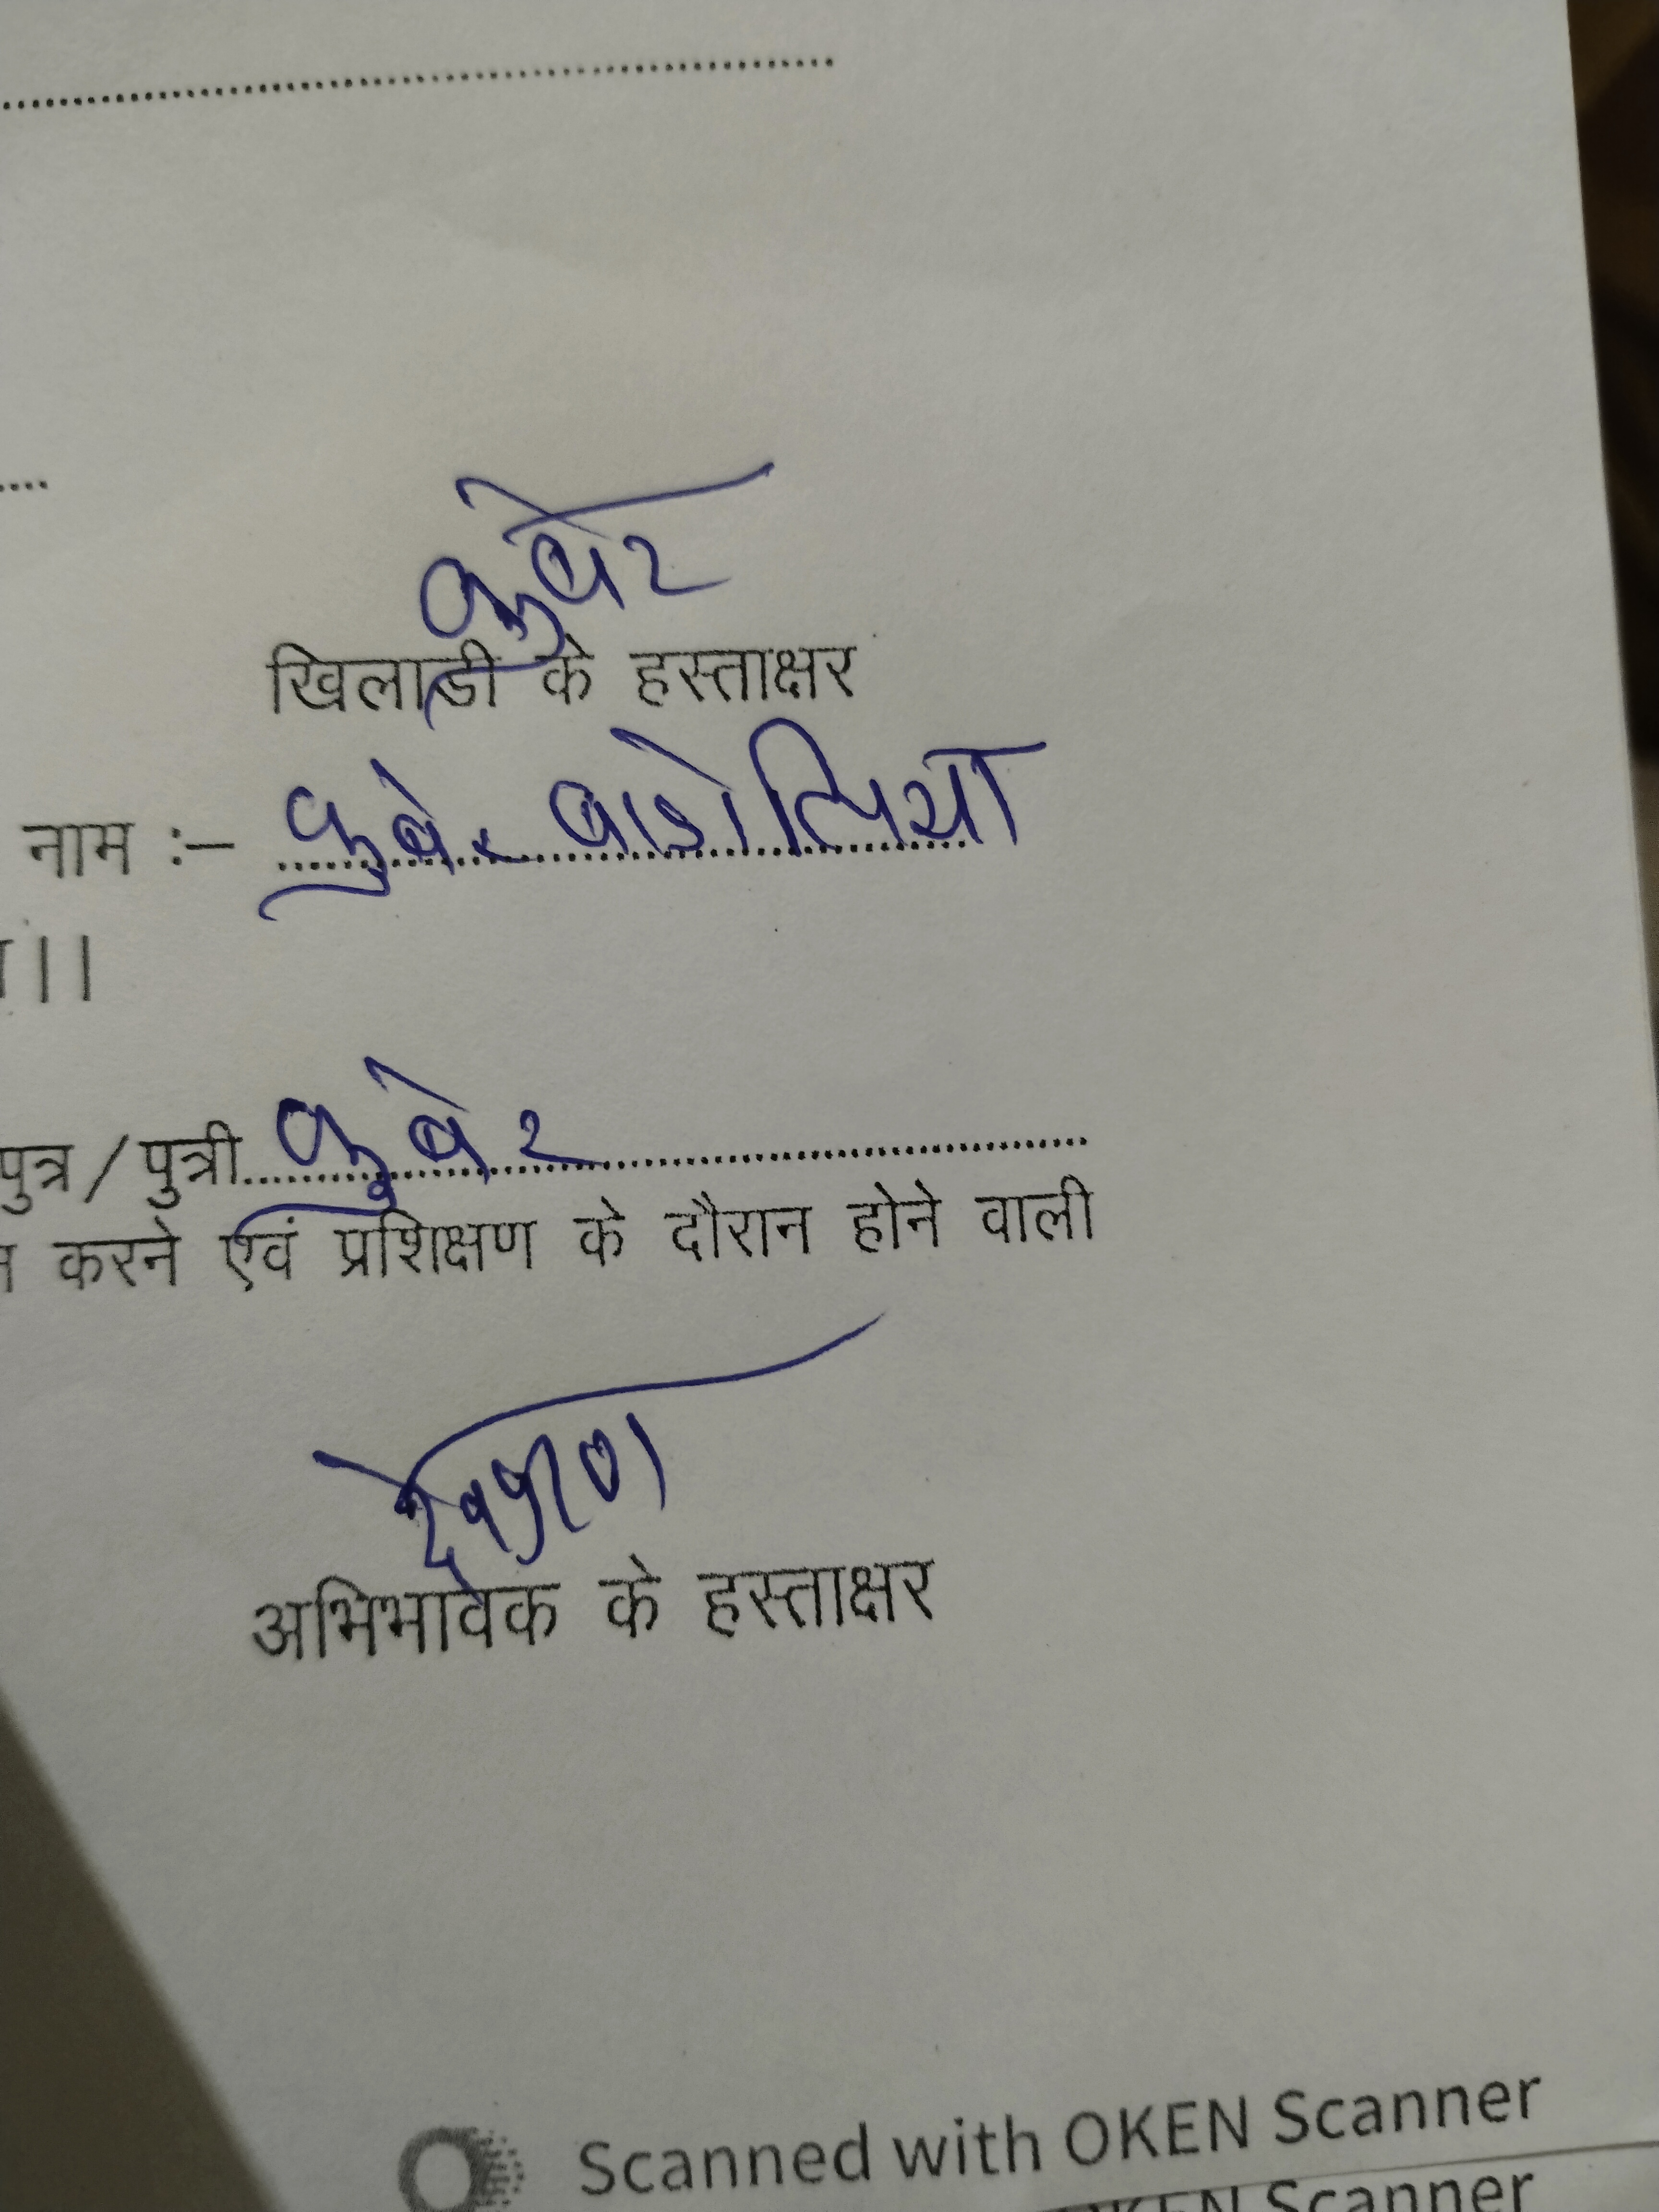 कुबेर
खिलाडी के हस्ताक्षर
नाम :– कुबेर
।।
पुत्र/पुत्री कुबेर
करने एवं प्रशिक्षण के दौरान होने वाली
अभिभावक के हस्ताक्षर
Scanned with OKEN Scanner
OKEN Scanner